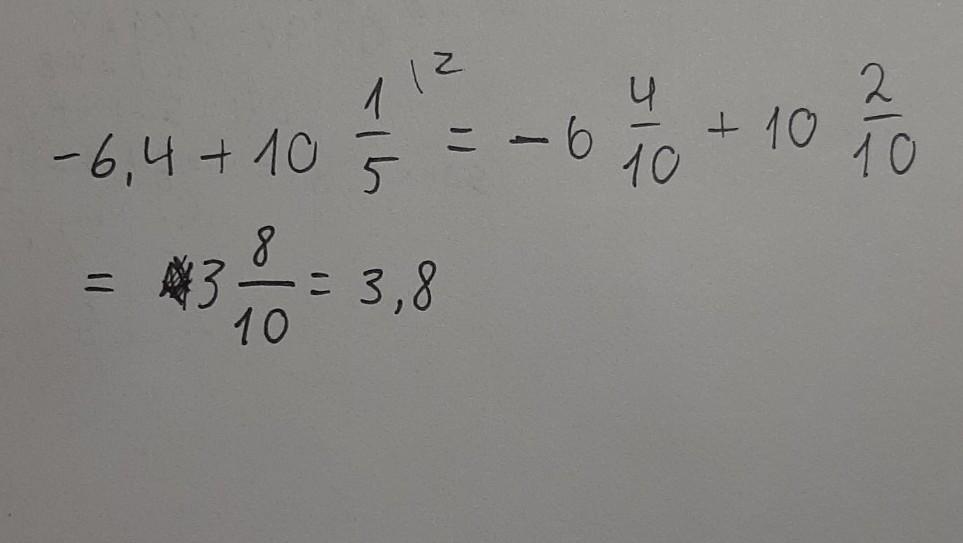 -6,4 + 10 1/5 \2 = -6 4/10 + 10 2/10
= 3 8/10 = 3,8